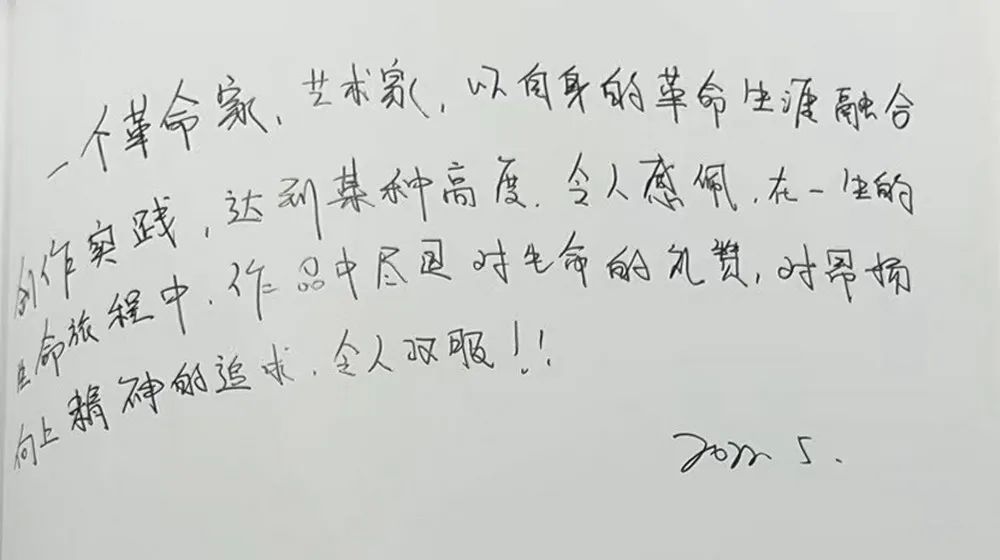 一个革命家、艺术家，以自身的革命生涯融合
创作实践，达到某种高度，令人感佩，在一生的
生命旅程中，作品中尽是对生命的礼赞，对昂扬
向上精神的追求，令人叹服！！
2022.5.